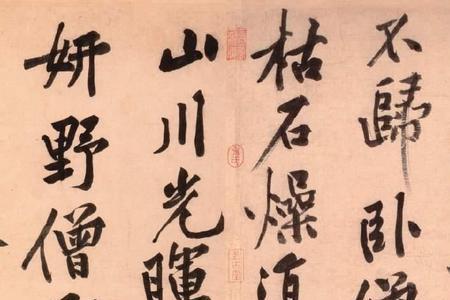 不歸卧僧
枯石燥復
山川光暉
妍野僧